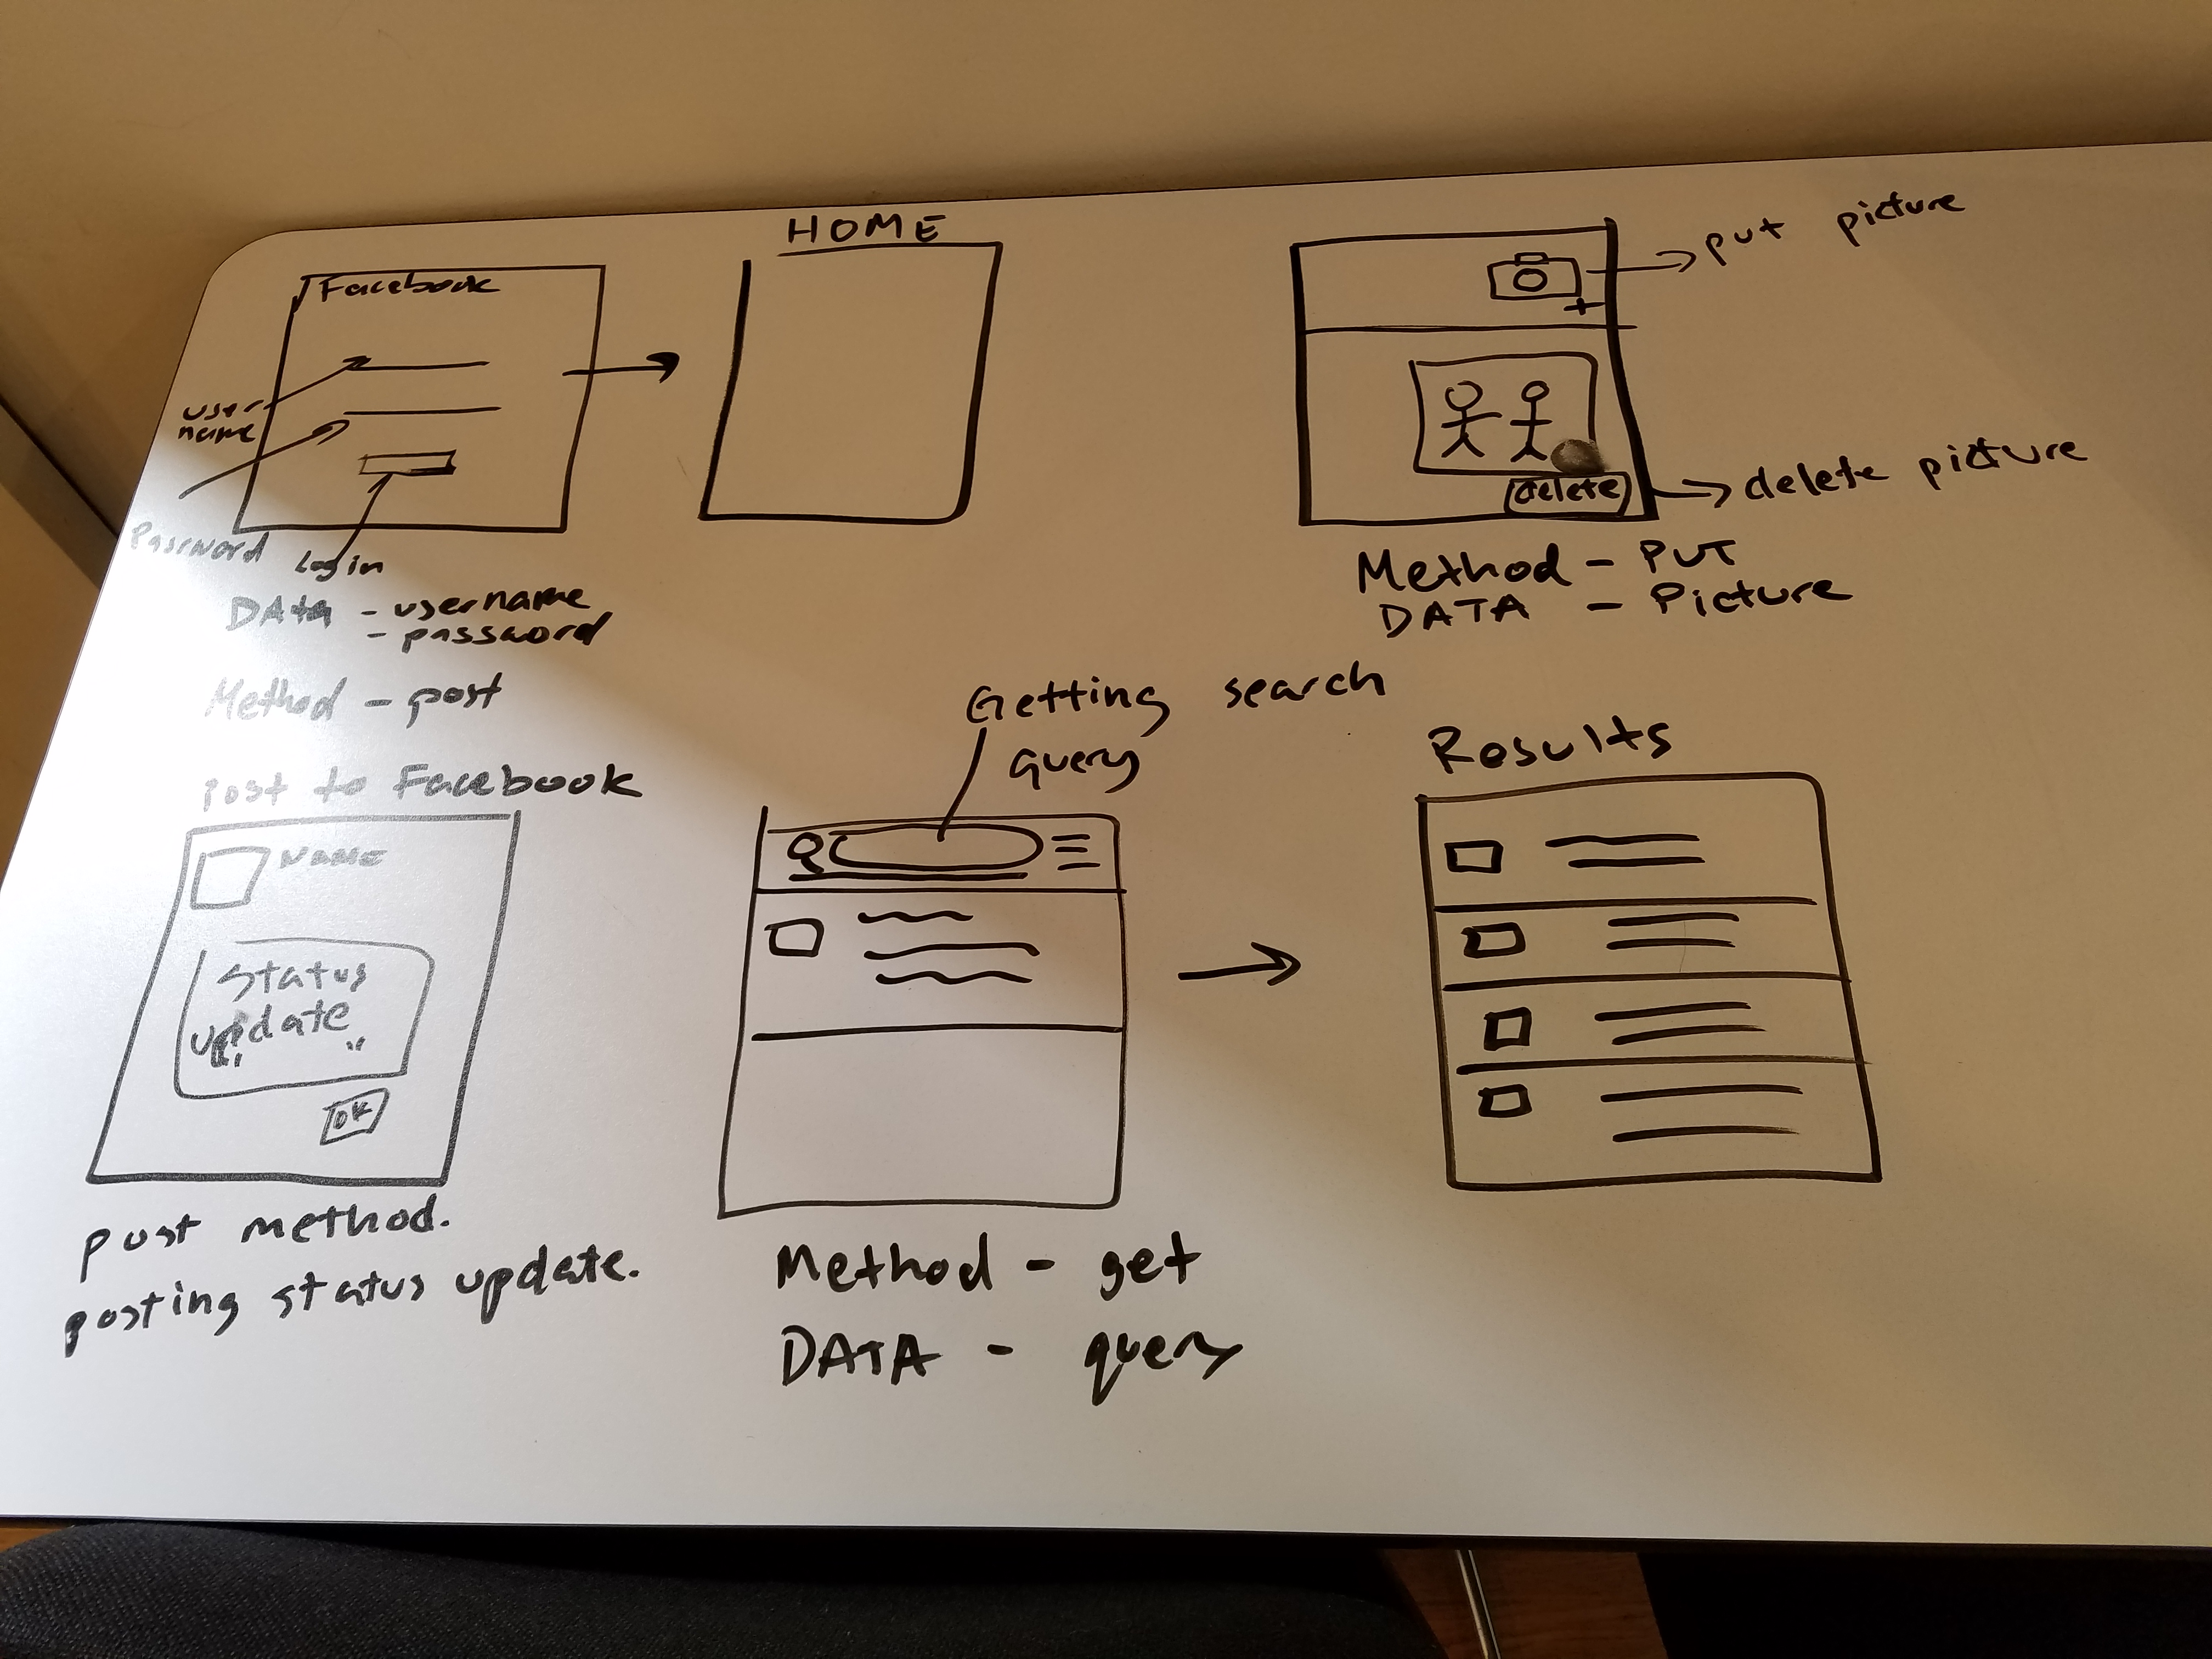 Facebook
user
name
Password
Login
DATA - username
- password
Method - post
HOME
put picture
delete
delete picture
Method - PUT
DATA - Picture
Post to Facebook
NAME
Status
update
OK
post method.
posting status update.
Getting search
query
Method - get
DATA - query
Results